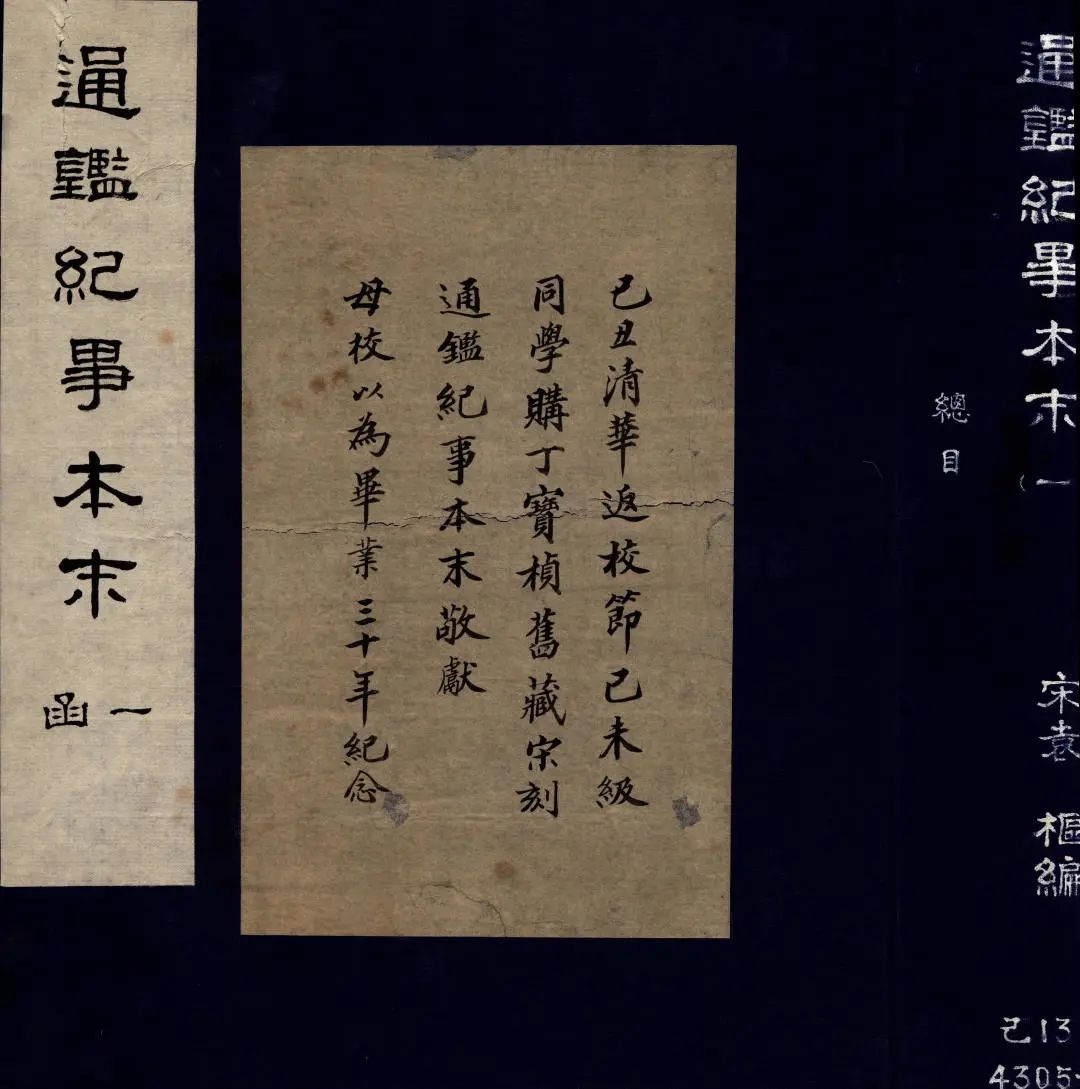 通鑑紀事本末
一函
己丑清華返校節己未級
同學購丁寶楨舊藏宋刻
通鑑紀事本末敬獻
母校以為畢業三十年紀念
通鑑紀事本末 一
總目
宋袁 樞編
己13
4305